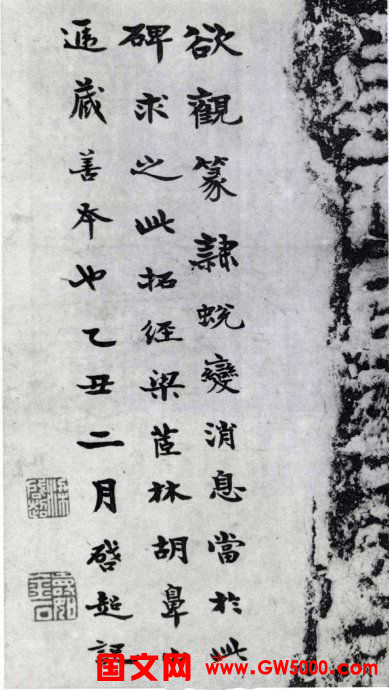 欲觀篆隸蛻變消息當於此
碑求之此拓經梁茝林胡鼻
遞藏善本也乙丑二月啓超記
国文网 www.GW5000.com